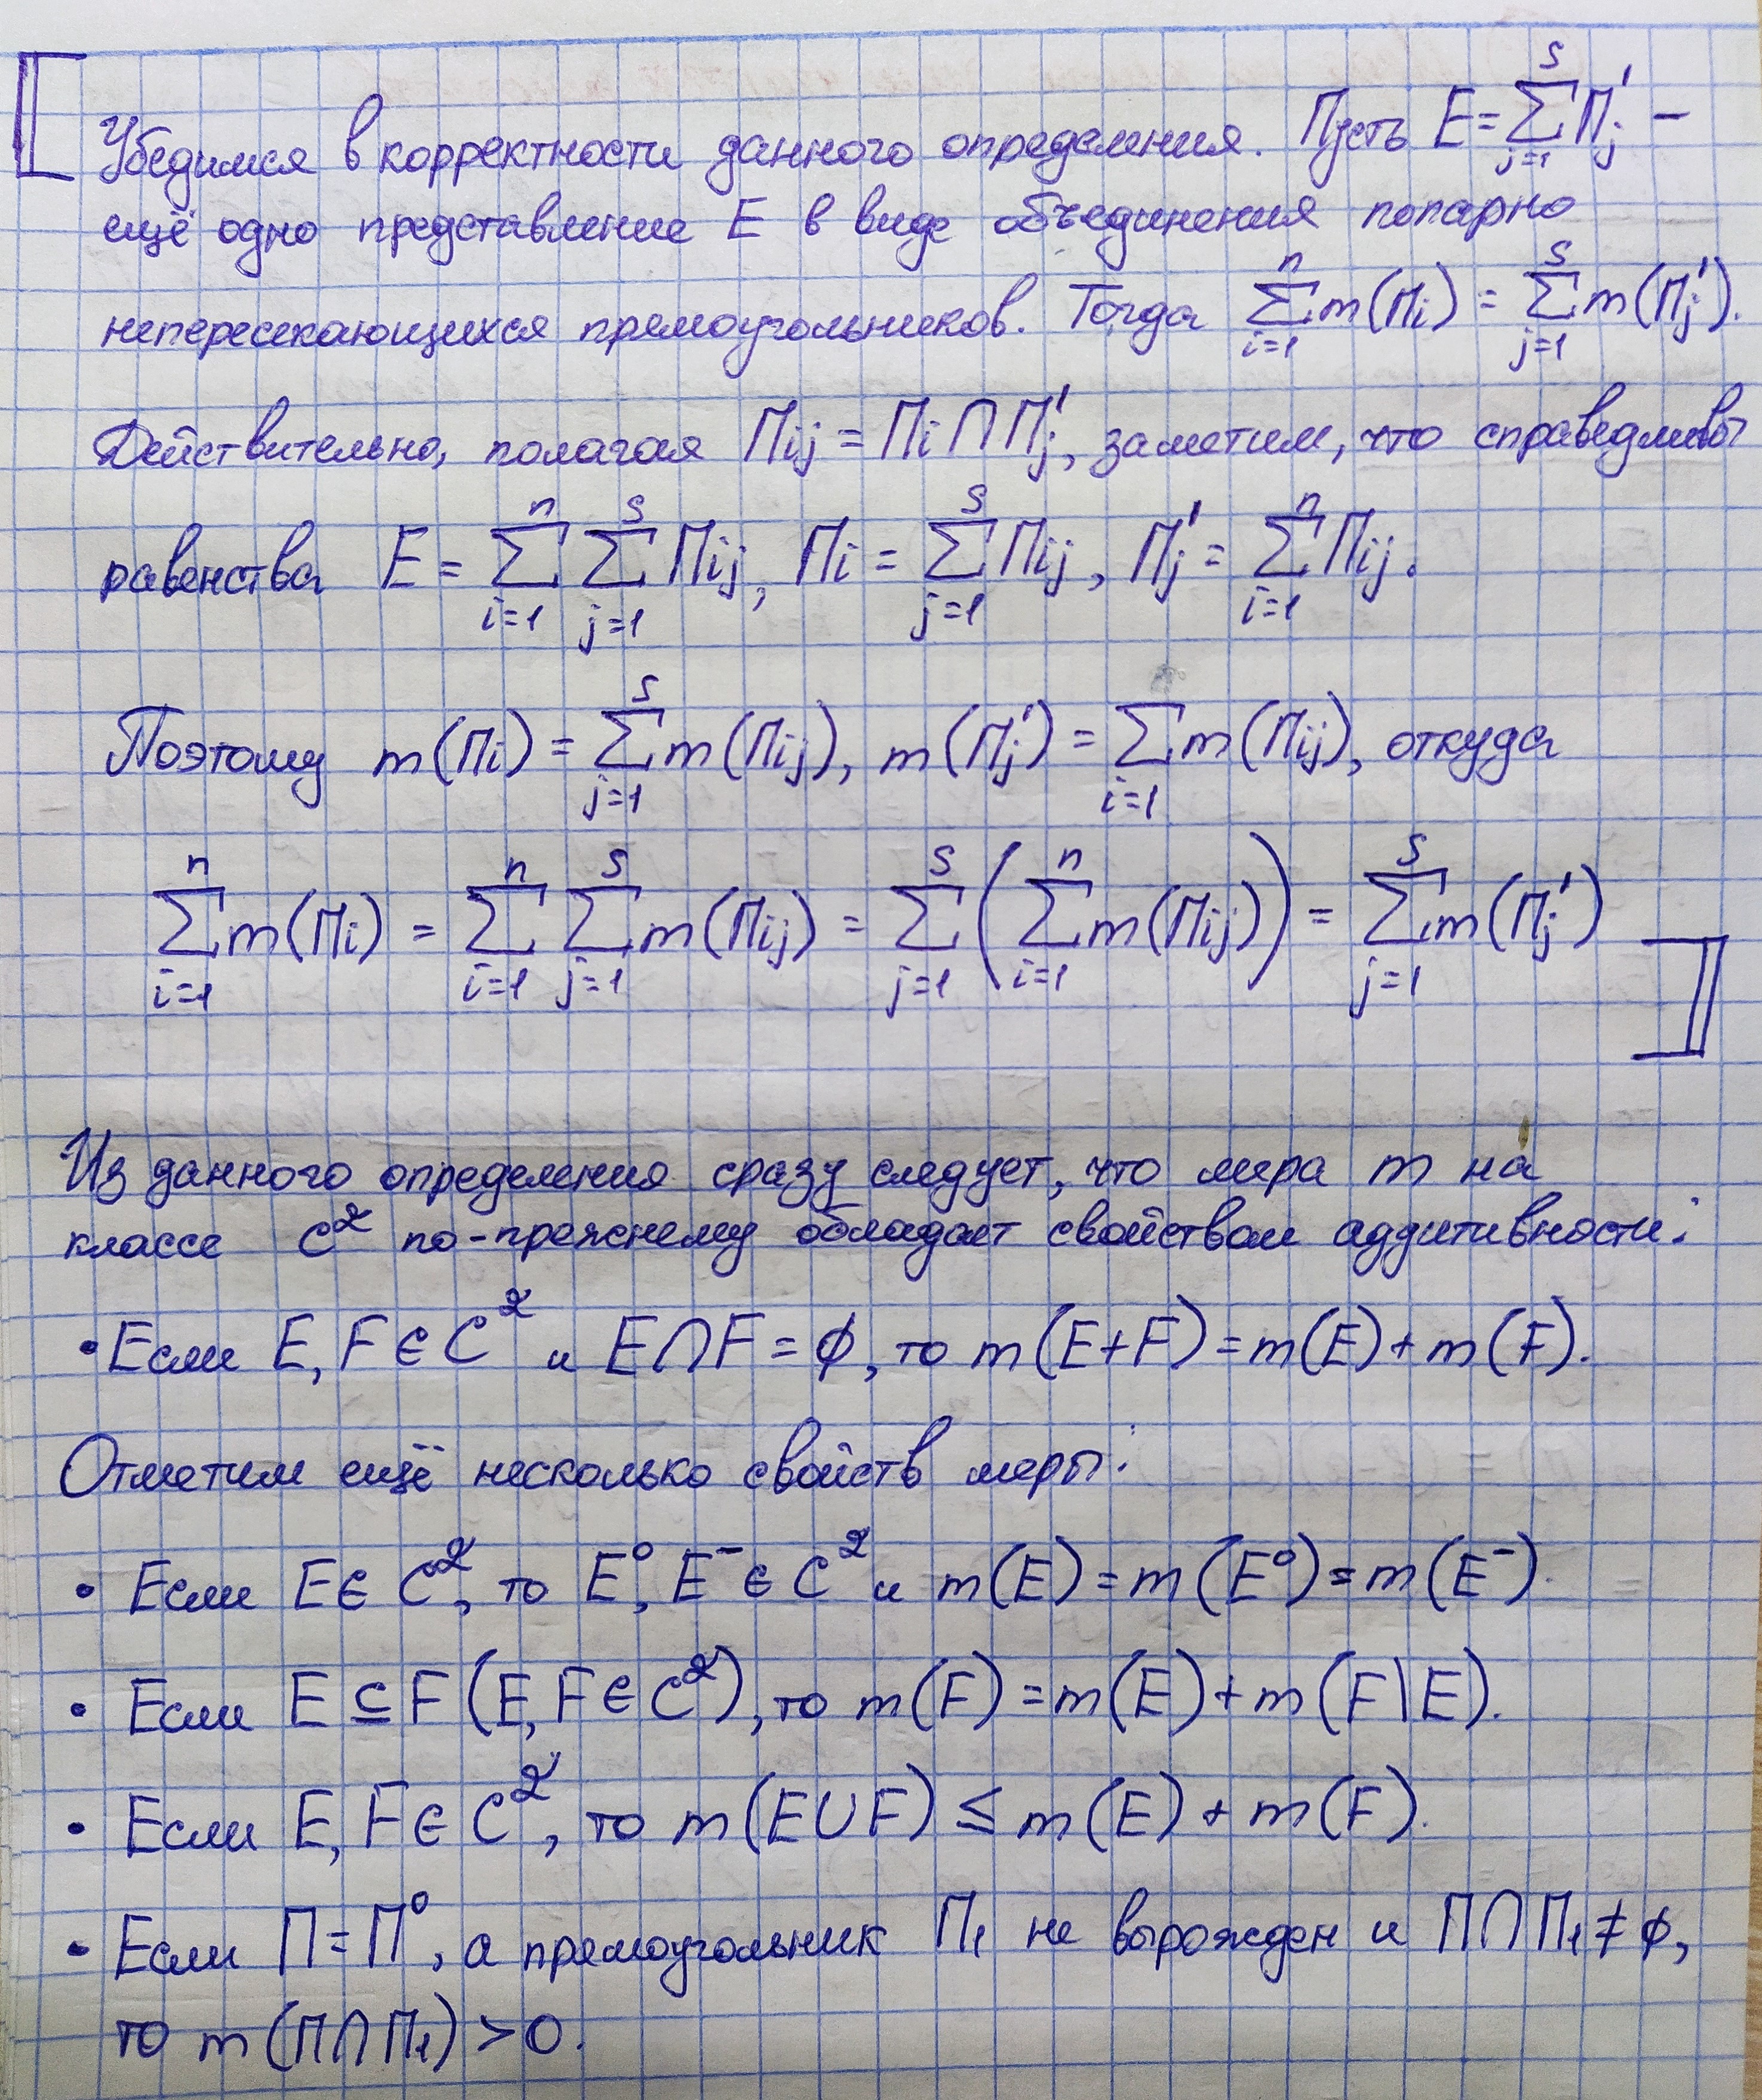 Убедимся в корректности данного определения. Пусть E = \sum_{j=1}^{s} П'_j —
ещё одно представление E в виде объединения попарно
непересекающихся прямоугольников. Тогда \sum_{i=1}^{n} m(П_i) = \sum_{j=1}^{s} m(П'_j).
Действительно, полагая П_{ij} = П_i ∩ П'_j, заметим, что справедливы
равенства E = \sum_{i=1}^{n} \sum_{j=1}^{s} П_{ij}, П_i = \sum_{j=1}^{s} П_{ij}, П'_j = \sum_{i=1}^{n} П_{ij}.
Поэтому m(П_i) = \sum_{j=1}^{s} m(П_{ij}), m(П'_j) = \sum_{i=1} m(П_{ij}), откуда
\sum_{i=1}^{n} m(П_i) = \sum_{i=1}^{n} \sum_{j=1}^{s} m(П_{ij}) = \sum_{j=1}^{s} ( \sum_{i=1}^{n} m(П_{ij}) ) = \sum_{j=1}^{s} m(П'_j)
Из данного определения сразу следует, что мера m на
классе C² по-прежнему обладает свойством аддитивности:
• Если E, F ∈ C² и E∩F = ∅, то m(E+F) = m(E) + m(F).
Отметим ещё несколько свойств меры:
• Если E ∈ C², то E⁰, E⁻ ∈ C² и m(E) = m(E⁰) = m(E⁻).
• Если E ⊆ F (E, F ∈ C²), то m(F) = m(E) + m(F\E).
• Если E, F ∈ C², то m(E∪F) ≤ m(E) + m(F).
• Если П = П⁰, а прямоугольник П₁ не вырожден и П∩П₁ ≠ ∅,
то m(П∩П₁) > 0.